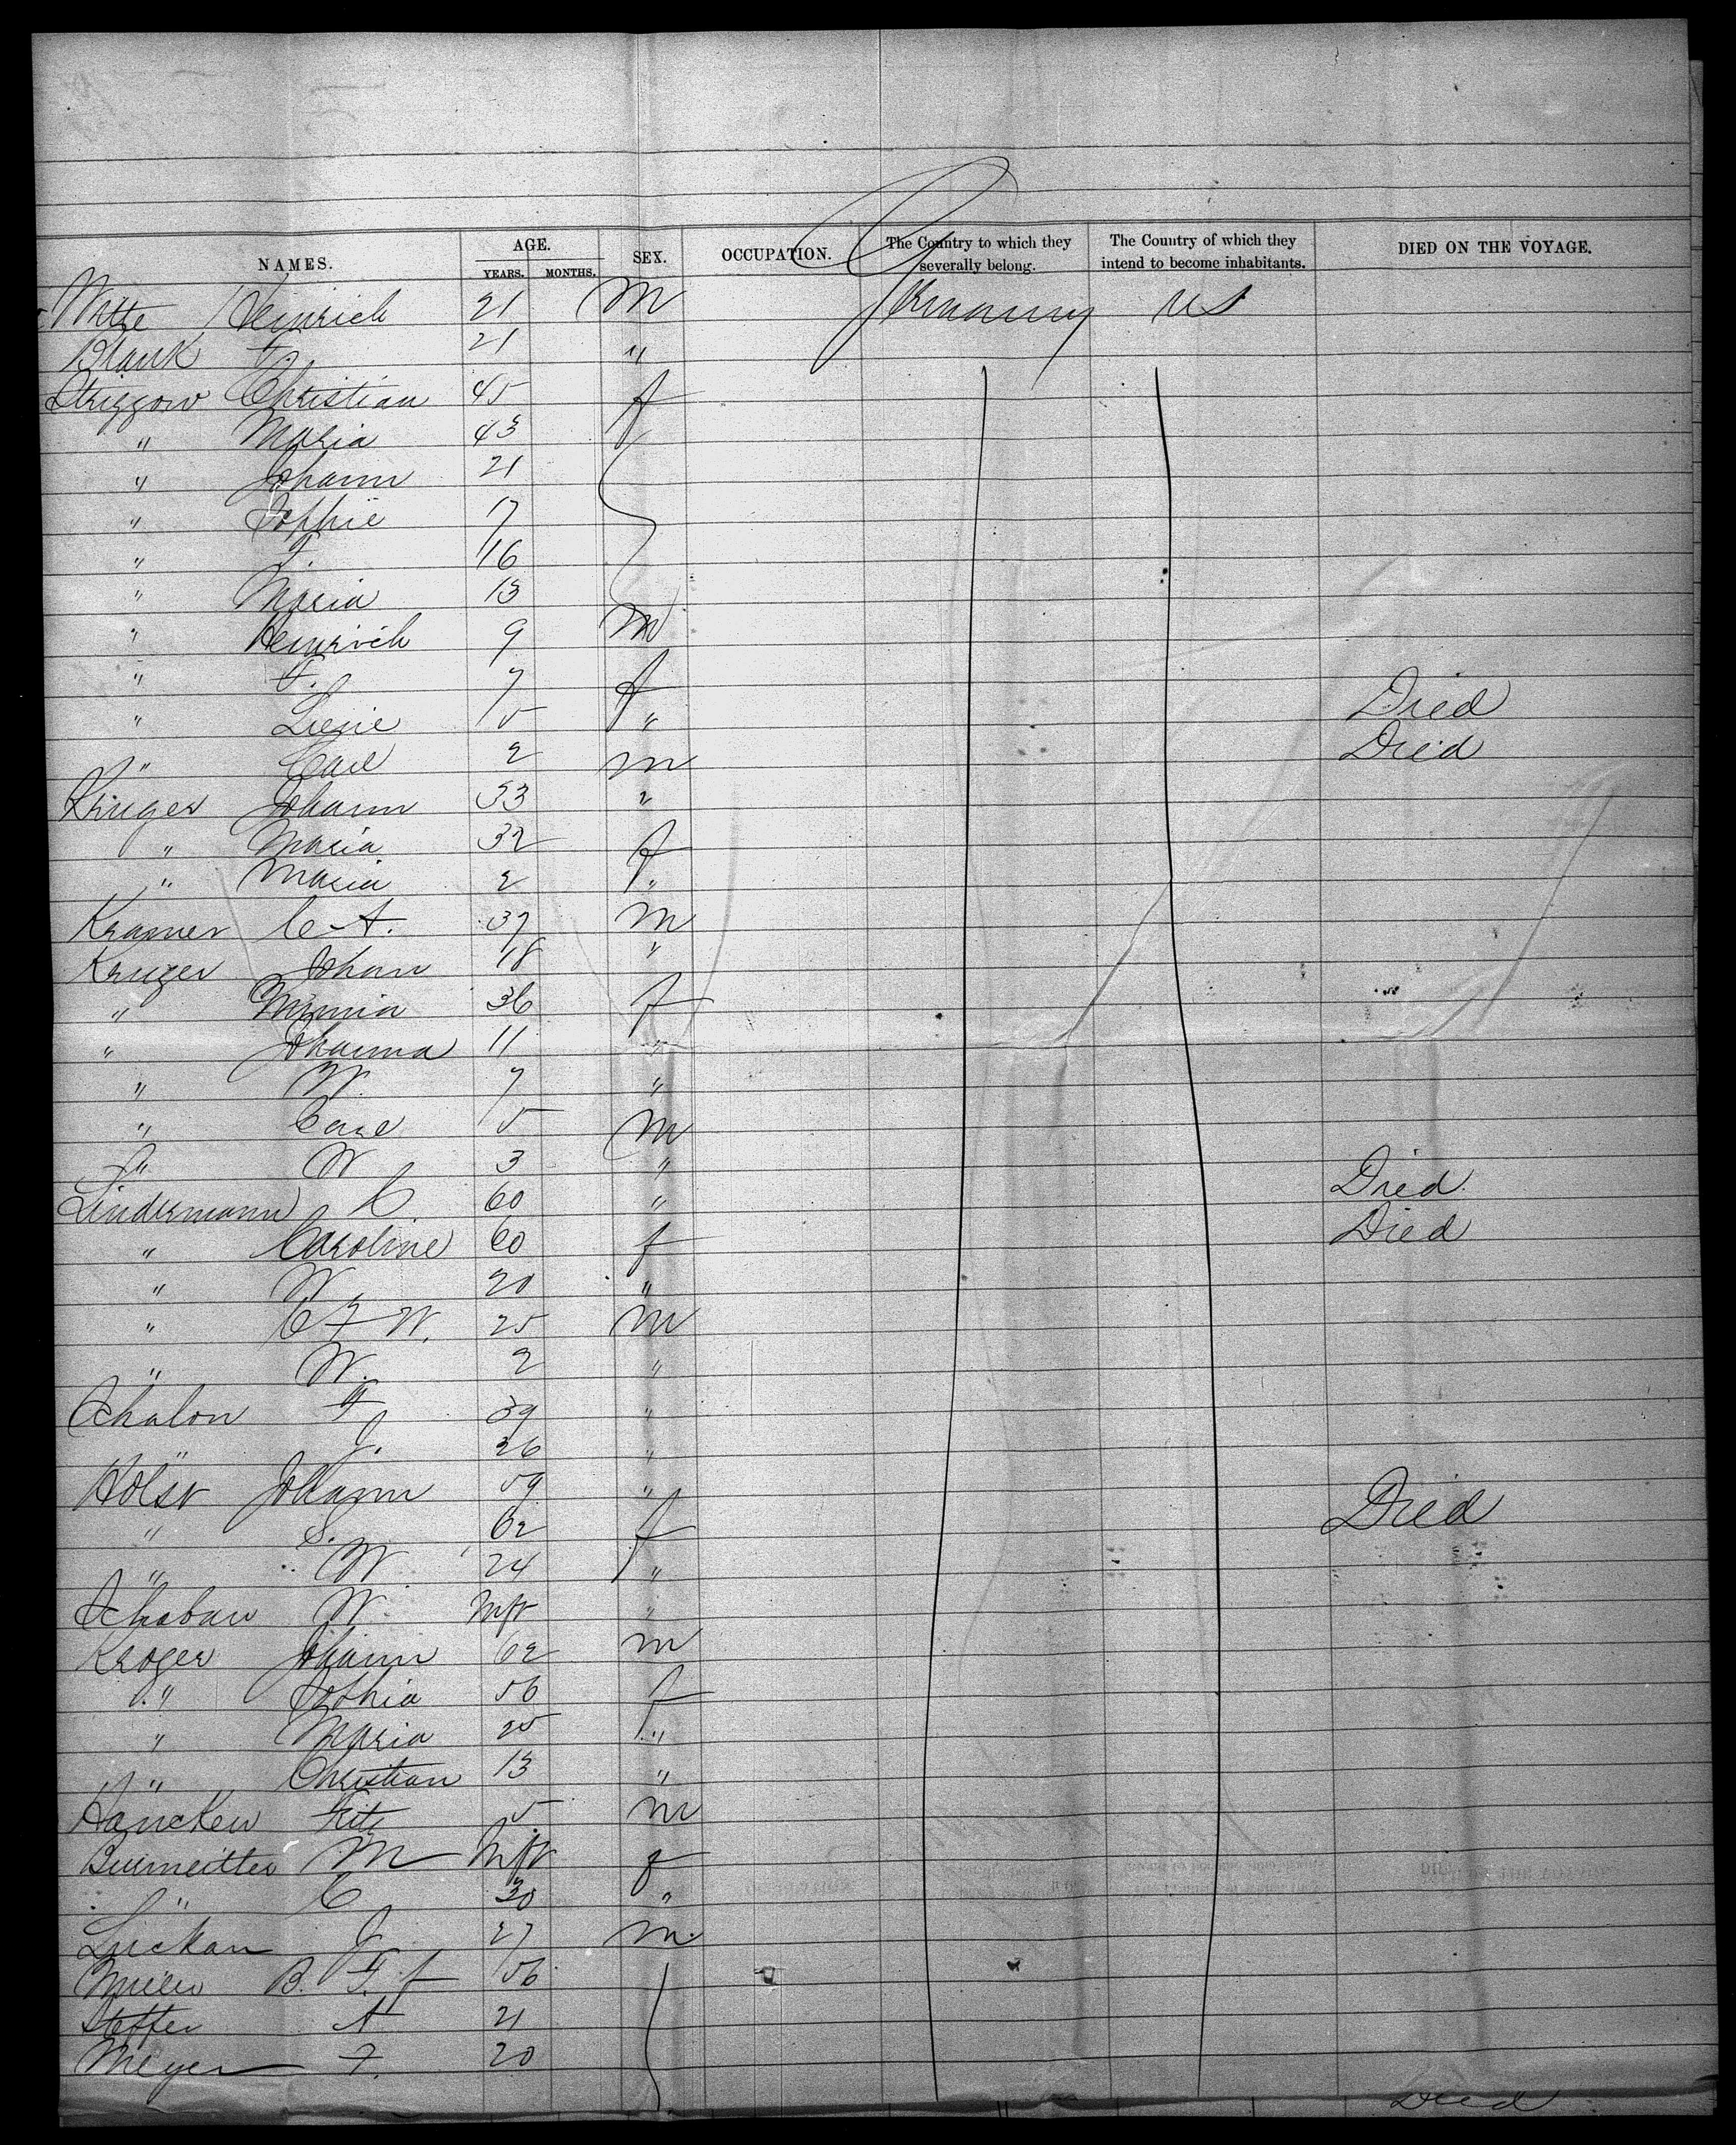 NAMES. AGE. YEARS. MONTHS. SEX. OCCUPATION. The Country to which they severally belong. The Country of which they intend to become inhabitants. DIED ON THE VOYAGE.
Witte Heinrich 21 M Germany US
Blank F 21 "
Striggow Christian 45 f
" Maria 43
" Johann 21
" Sophie 17
" J. 16
" Maria 13
" Heinrich 9 M
" F. 7 f
" Liesie 5 " Died
" Carl 2 M Died
Kruger Johann 33 "
" Maria 32 f
" Maria 2 "
Kramer C A. 37 M
Kruger Johan 18 "
" Minnia 36 f
" Johanna 11 "
" W. 7 "
" Carl 5 M
" W 3 "
Lindermann C 60 " Died
" Caroline 60 f Died
" W 20 "
" C F W. 25 M
" W. 2 "
Schalon F 39 "
" J. 26 "
Holst Johann 59 "
" S. 62 f Died
" W 24 "
Schaban W. Inft "
Kroger Johann 62 M
" Sophia 56 f
" Maria 25 "
" Christian 13 "
Hancken Fritz 5 M
Burmeitter M Inft f
" C 30 "
Luckan J 27 M.
B. F. f 56
Steffer A 21
Meyer F. 20
Died